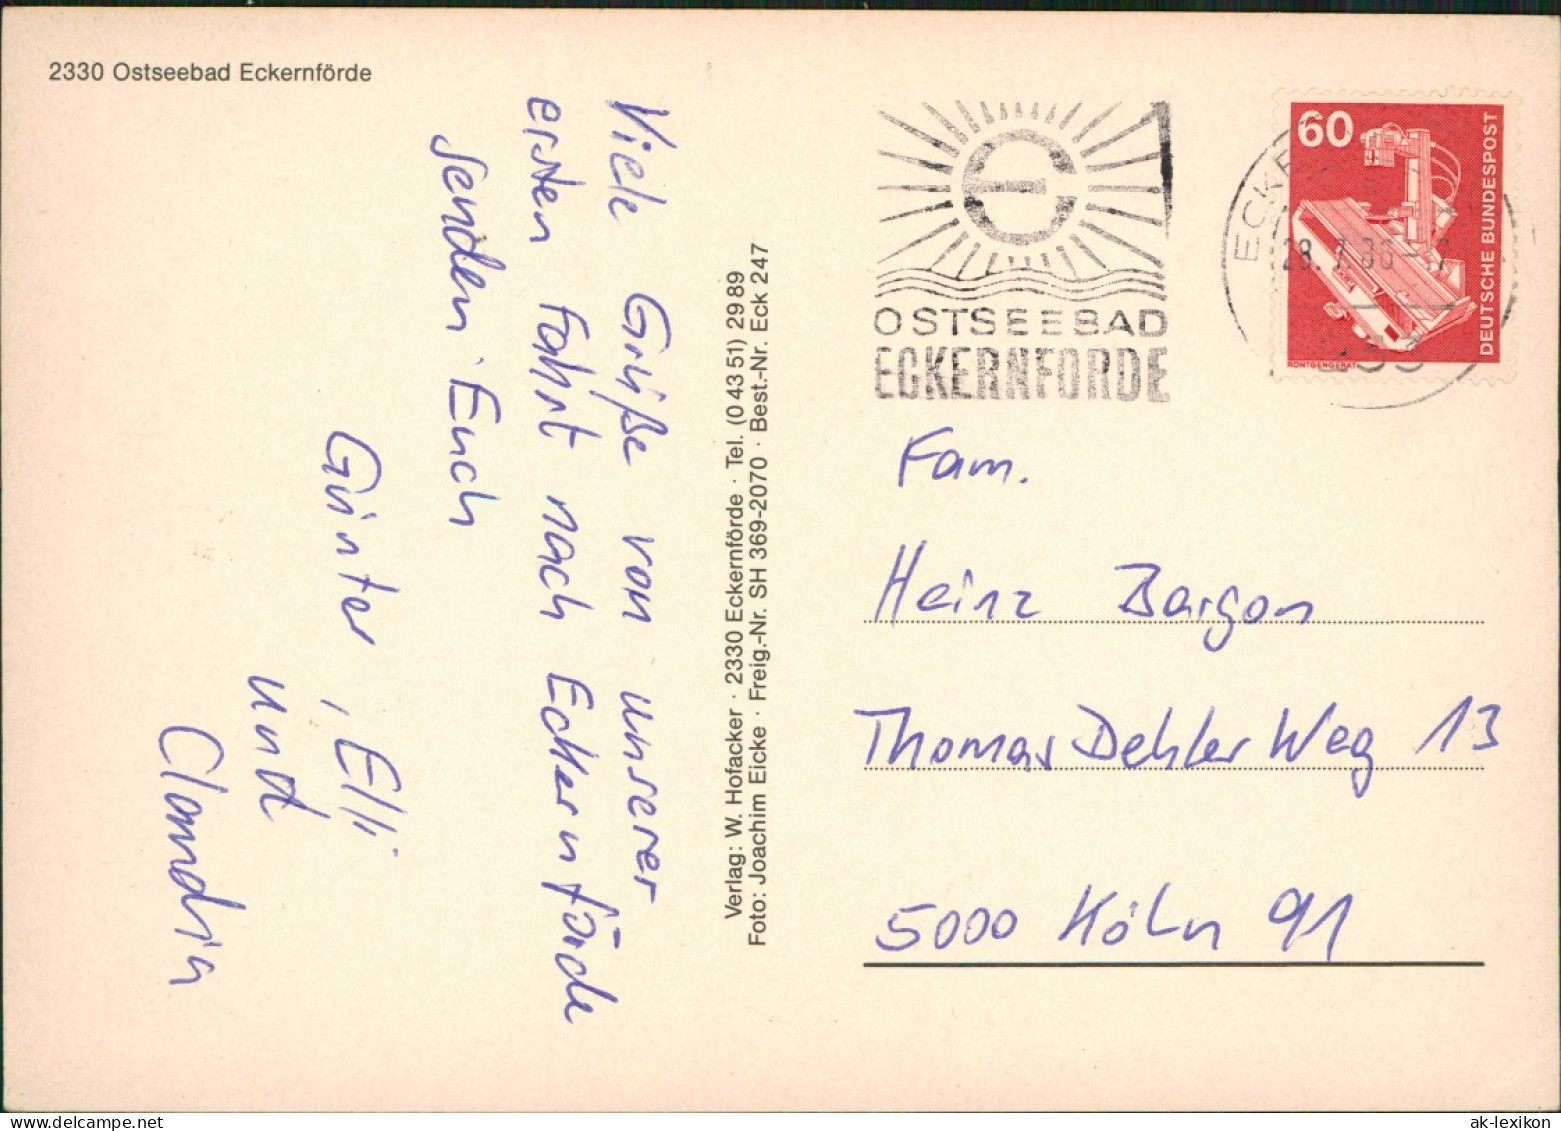 2330 Ostseebad Eckernförde
Viele Grüße von unserer
ersten Fahrt nach Eckernförde
senden Euch
Günter, Elli
und
Claudia
Verlag: W. Hofacker · 2330 Eckernförde · Tel. (0 43 51) 29 89
Foto: Joachim Eicke · Freig.-Nr. SH 369-2070 · Best.-Nr. Eck 247
OSTSEEBAD
ECKERNFÖRDE
60
DEUTSCHE BUNDESPOST
RÖNTGENGERÄT
28.7.86
Fam.
Heinz Bargon
Thomas Dehler Weg 13
5000 Köln 91
ak-lexikon.com